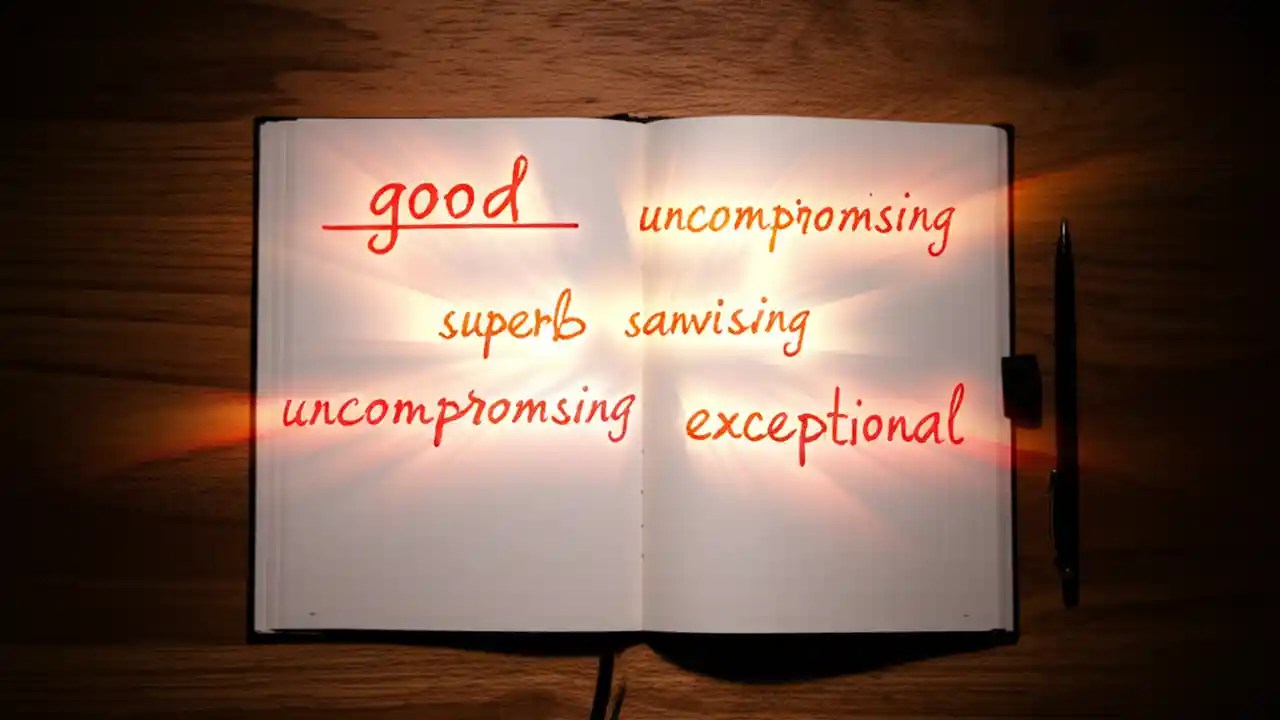 good uncompromising
superb sanvising
uncompromsing exceptional